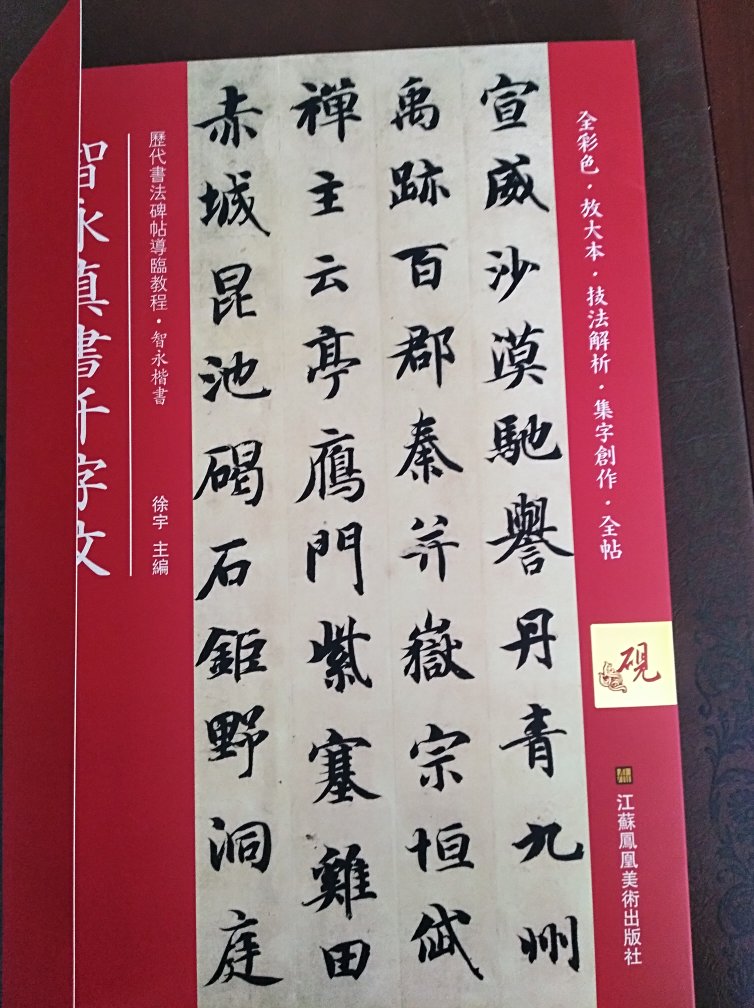 全彩色·放大本·技法解析·集字創作·全帖
硯
江蘇鳳凰美術出版社
宣威沙漠馳譽丹青九州
禹跡百郡秦并嶽宗恒岱
禪主云亭鴈門紫塞雞田
赤城昆池碣石鉅野洞庭
歷代書法碑帖導臨教程·智永楷書
徐宇 主編
智永真書千字文